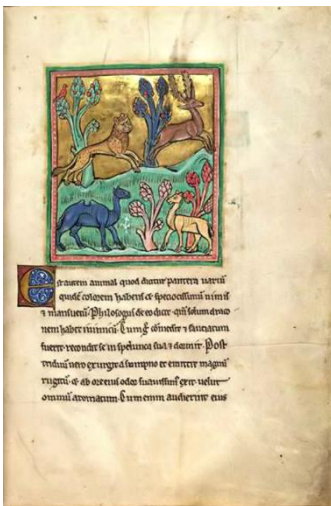 Est autem animal quod dicitur pantera variū
quidē colorem habens est speciocissimū nimis
& mansuetū. Phisologus de eo dicit. qm̄ solum draco
nem habet inimicū. Cum g comederit & saciatum
fuerit. recondit se in spelunca sua & dormit. Post
triduū vero exurgit a sompno & emittit magnū
rugitū. & ab ore eius odor suavissimus exit. velut
omniū aromatum. Cum enim audierint eius